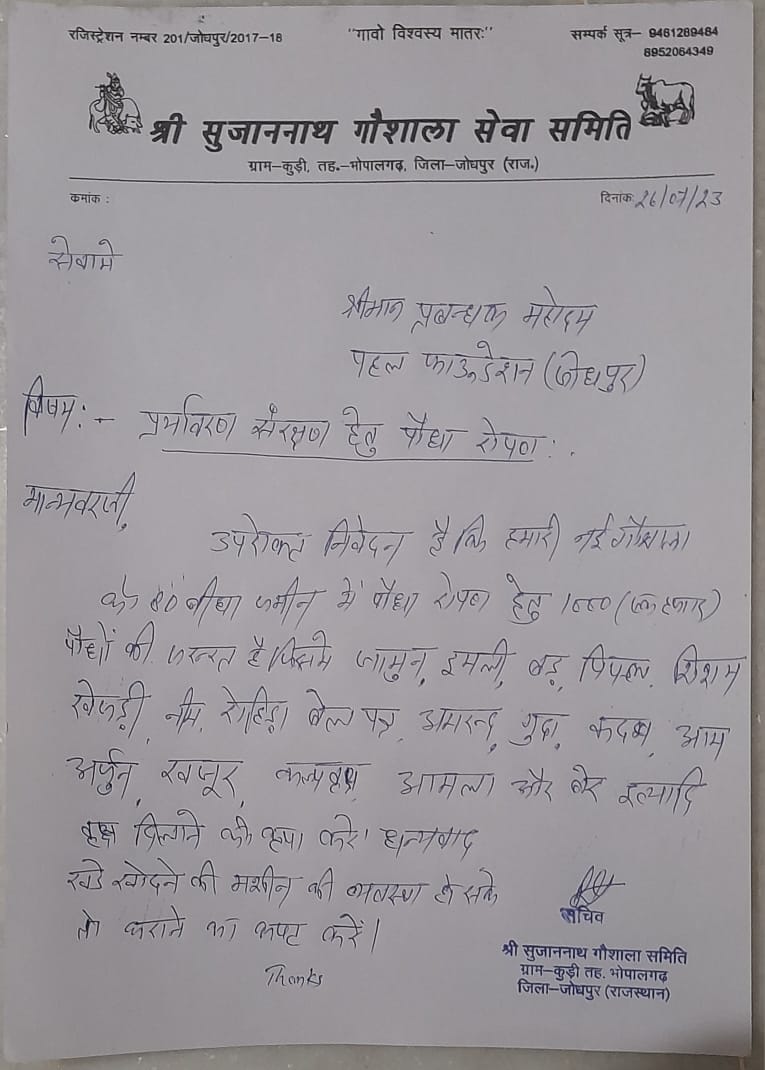 रजिस्ट्रेशन नम्बर 201/जोधपुर/2017-18
"गावो विश्वस्य मातरः"
सम्पर्क सूत्र– 9461289484
8952064349
श्री सुजाननाथ गौशाला सेवा समिति
ग्राम–कुड़ी, तह.–भोपालगढ़, जिला–जोधपुर (राज.)
कमांक :
दिनांक: 26/07/23
सेवामे
श्रीमान प्रबन्धक महोदय
पहल फाऊडेशन (जोधपुर)
विषय:- पर्यावरण संरक्षण हेतु पौधा रोपण :.
मान्यवरजी,
उपरोक्त निवेदन है कि हमारी नई गौशाला
के 80 बीघा जमीन में पौधा रोपण हेतु 1000 (एक हजार)
पौधों की जरूरत है जिसमे जामुन, इमली, बड़, पिपल, शिशम
खेजड़ी, नीम, रोहिड़ा बेल पत्र, अमरूद, गुदा, कदम्ब, आम
अर्जुन, खजूर, कल्पवृक्ष, आमला और बेर इत्यादि
वृक्ष दिलाने की कृपा करे। धन्यवाद
खडे खोदने की मशीन की व्यवस्था हो सके
तो कराने का कष्ट करें।
Thanks
सचिव
श्री सुजाननाथ गौशाला समिति
ग्राम–कुड़ी तह. भोपालगढ़
जिला–जोधपुर (राजस्थान)